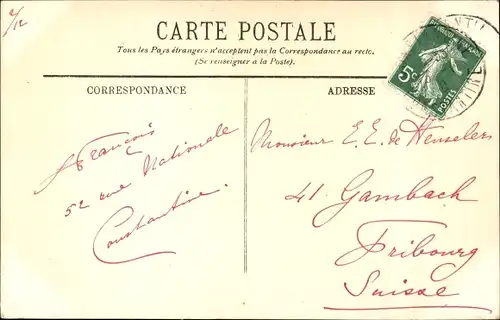 2/12
CARTE POSTALE
Tous les Pays étrangers n'acceptent pas la Correspondance au recto.
(Se renseigner à la Poste).
CORRESPONDANCE
ADRESSE
5c
POSTES
François
52 rue Nationale
Constantine.
Monsieur E. E. de Heuseler
41. Gambach
Fribourg
Suisse